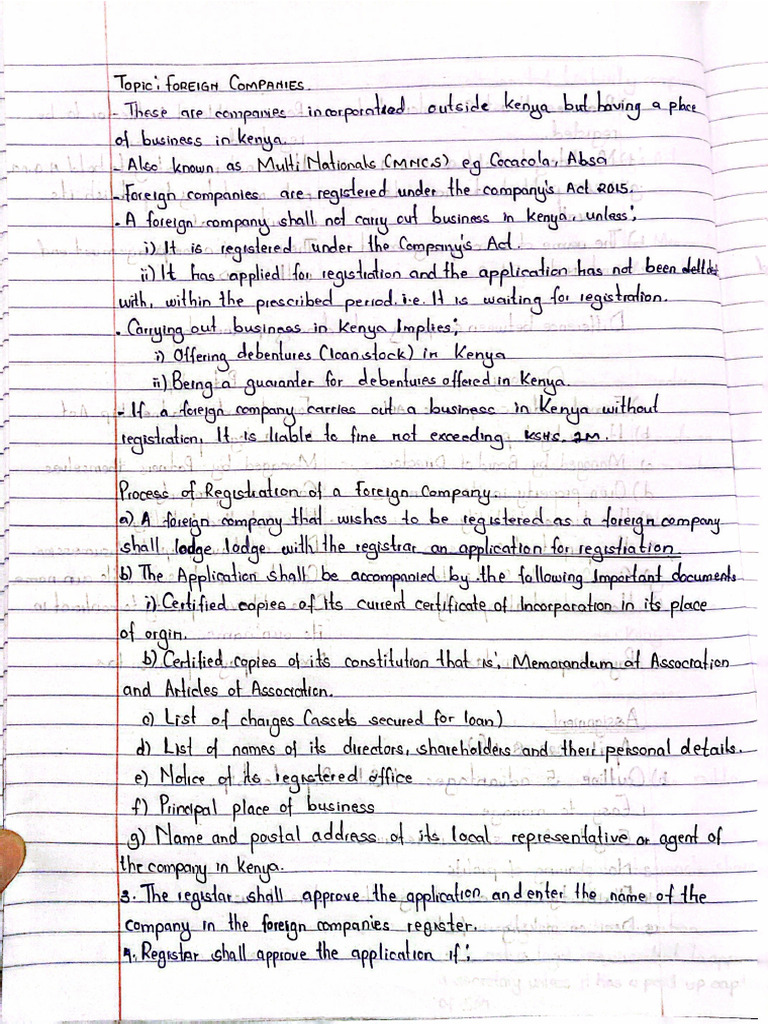 Topic: FOREIGN COMPANIES.
- These are companies incorporated outside Kenya but having a place
of business in Kenya.
- Also known as Multi Nationals (MNC,s) eg Cocacola, Absa
- Foreign companies are registered under the company's Act 2015.
- A foreign company shall not carry out business in Kenya, unless;
i) It is registered under the Company's Act.
ii) It has applied for registration and the application has not been
with, within the prescribed period. i.e. It is waiting for registration.
- Carrying out business in Kenya Implies;
i) Offering debentures (loan stock) in Kenya
ii) Being a guaranter for debentures offered in Kenya.
- If a foreign company carries out a business in Kenya without
registration, It is liable to fine not exceeding KSHS. 2M.
Process of Registration of a Foreign Company.
a) A foreign company that wishes to be registered as a foreign company
shall lodge lodge with the registrar an application for registration.
b) The Application shall be accompanied by the following important documents
i) Certified copies of its current certificate of Incorporation in its place
of orgin.
b) Certified copies of its constitution that is; Memorandum of Association
and Articles of Association.
c) List of charges (assets secured for loan)
d) List of names of its directors, shareholders and their personal details.
e) Notice of its registered office
f) Principal place of business
g) Name and postal address of its local representative or agent of
the company in Kenya.
3. The registar shall approve the application and enter the name of the
company in the foreign companies register.
4. Registar shall approve the application if;